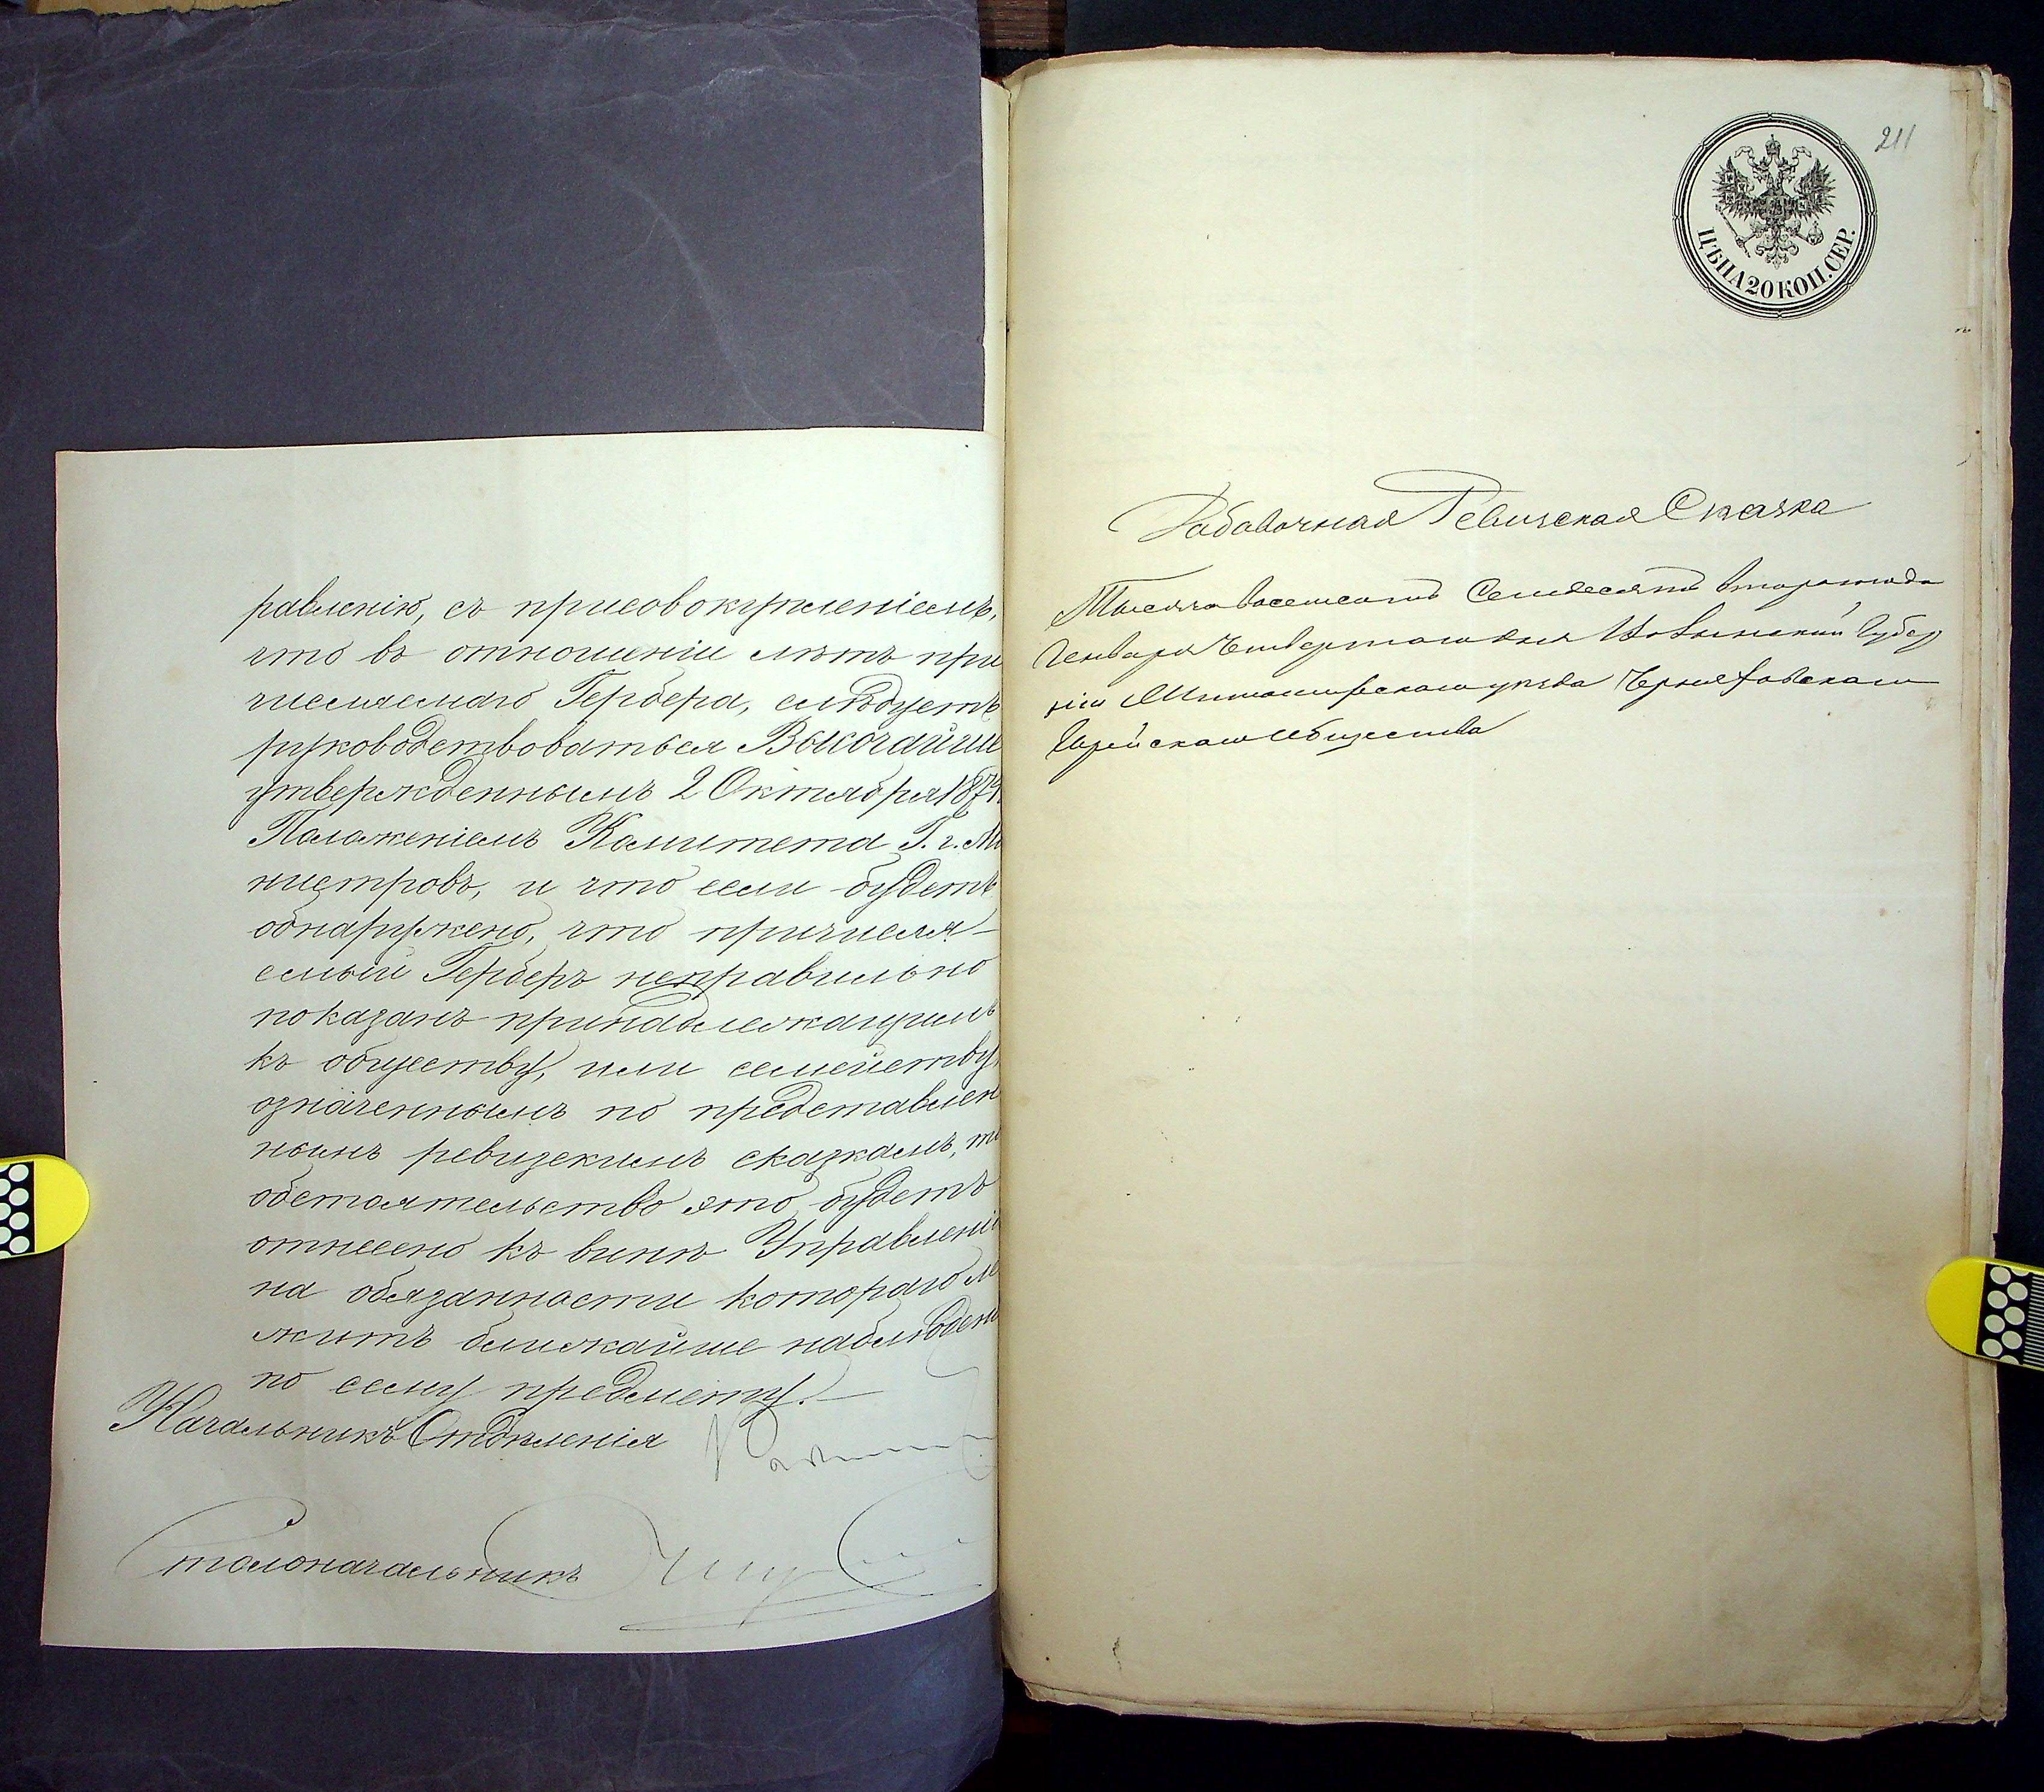 равленію, съ присовокупленіемъ,
что въ отношеніи лѣтъ при
числяемаго Гербера, слѣдуетъ
руководствоваться Высочайше
утвержденнымъ 2 Октября 1871
Положеніемъ Комитета Г. г. Ми
нистровъ, и что если будетъ
обнаружено, что причисля-
емый Герберъ неправильно
показанъ принадлежащимъ
къ обществу, или семейству,
означеннымъ по представлен
нымъ ревизскимъ сказкамъ, то
обстоятельство это будетъ
отнесено къ винѣ Управленія
на обязанности котораго ле
житъ ближайше наблюден
по сему предмету.—
Начальникъ Отдѣленія
Столоначальникъ
211
ЦѢНА 20 КОП. СЕР.
Добавочная Ревизская Сказка
Тысяча восемсотъ Семдесятъ втораго года
Генваря Четвертаго дня Волынской Губер
ніи Житомирскаго уѣзда Черняховскаго
Еврейскаго Общества